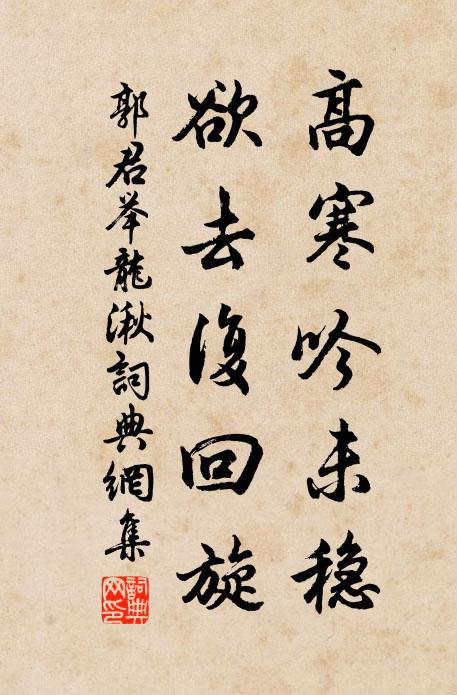 高寒吟未稳
欲去復回旋
郭君举龍湫詞典網集
詞典网印